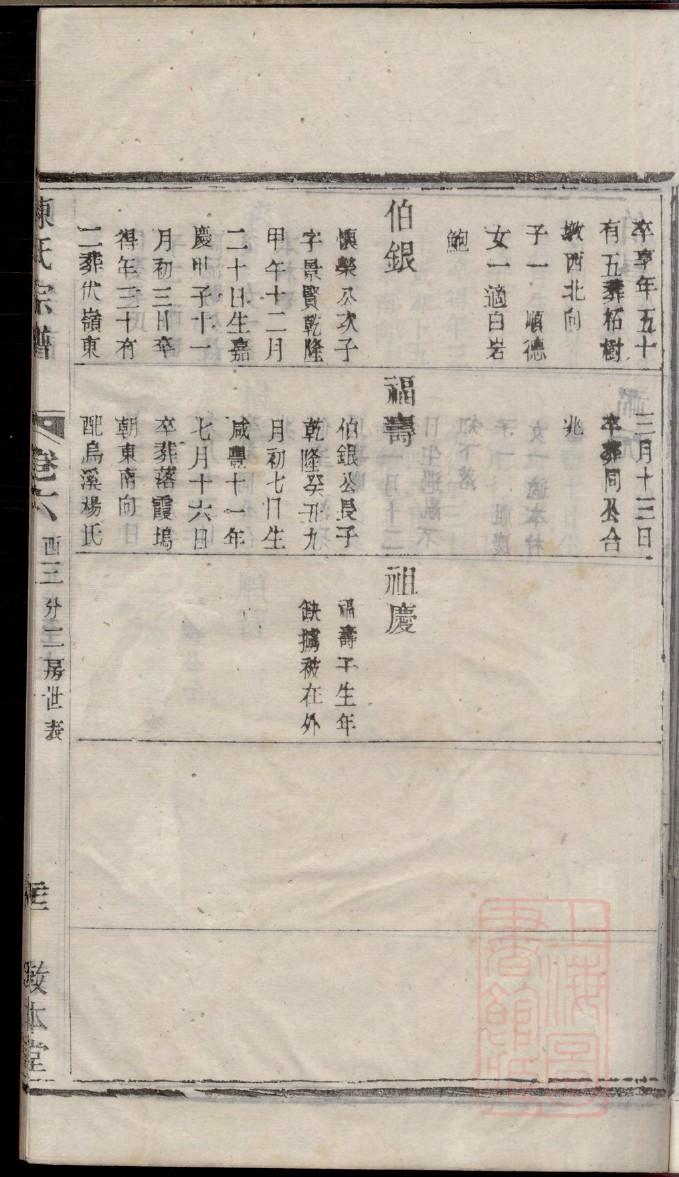 卒享年五十
有五葬柘樹
墩西北向
子一 順德
女一適白岩
鮑
伯銀
懷榮公次子
字景賢乾隆
甲午十二月
二十日生嘉
慶甲子十一
月初三日卒
得年三十有
二葬伏嶺東
三月十三日
卒葬同公合
兆
福壽
伯銀公長子
乾隆癸丑九
月初七日生
咸豐十一年
七月十六日
卒葬落霞塢
朝東南向
配烏溪楊氏
祖慶
福壽子生年
缺擄被在外
陳氏宗譜
卷六
酉三分二房世表
敦本堂
上海圖書館藏